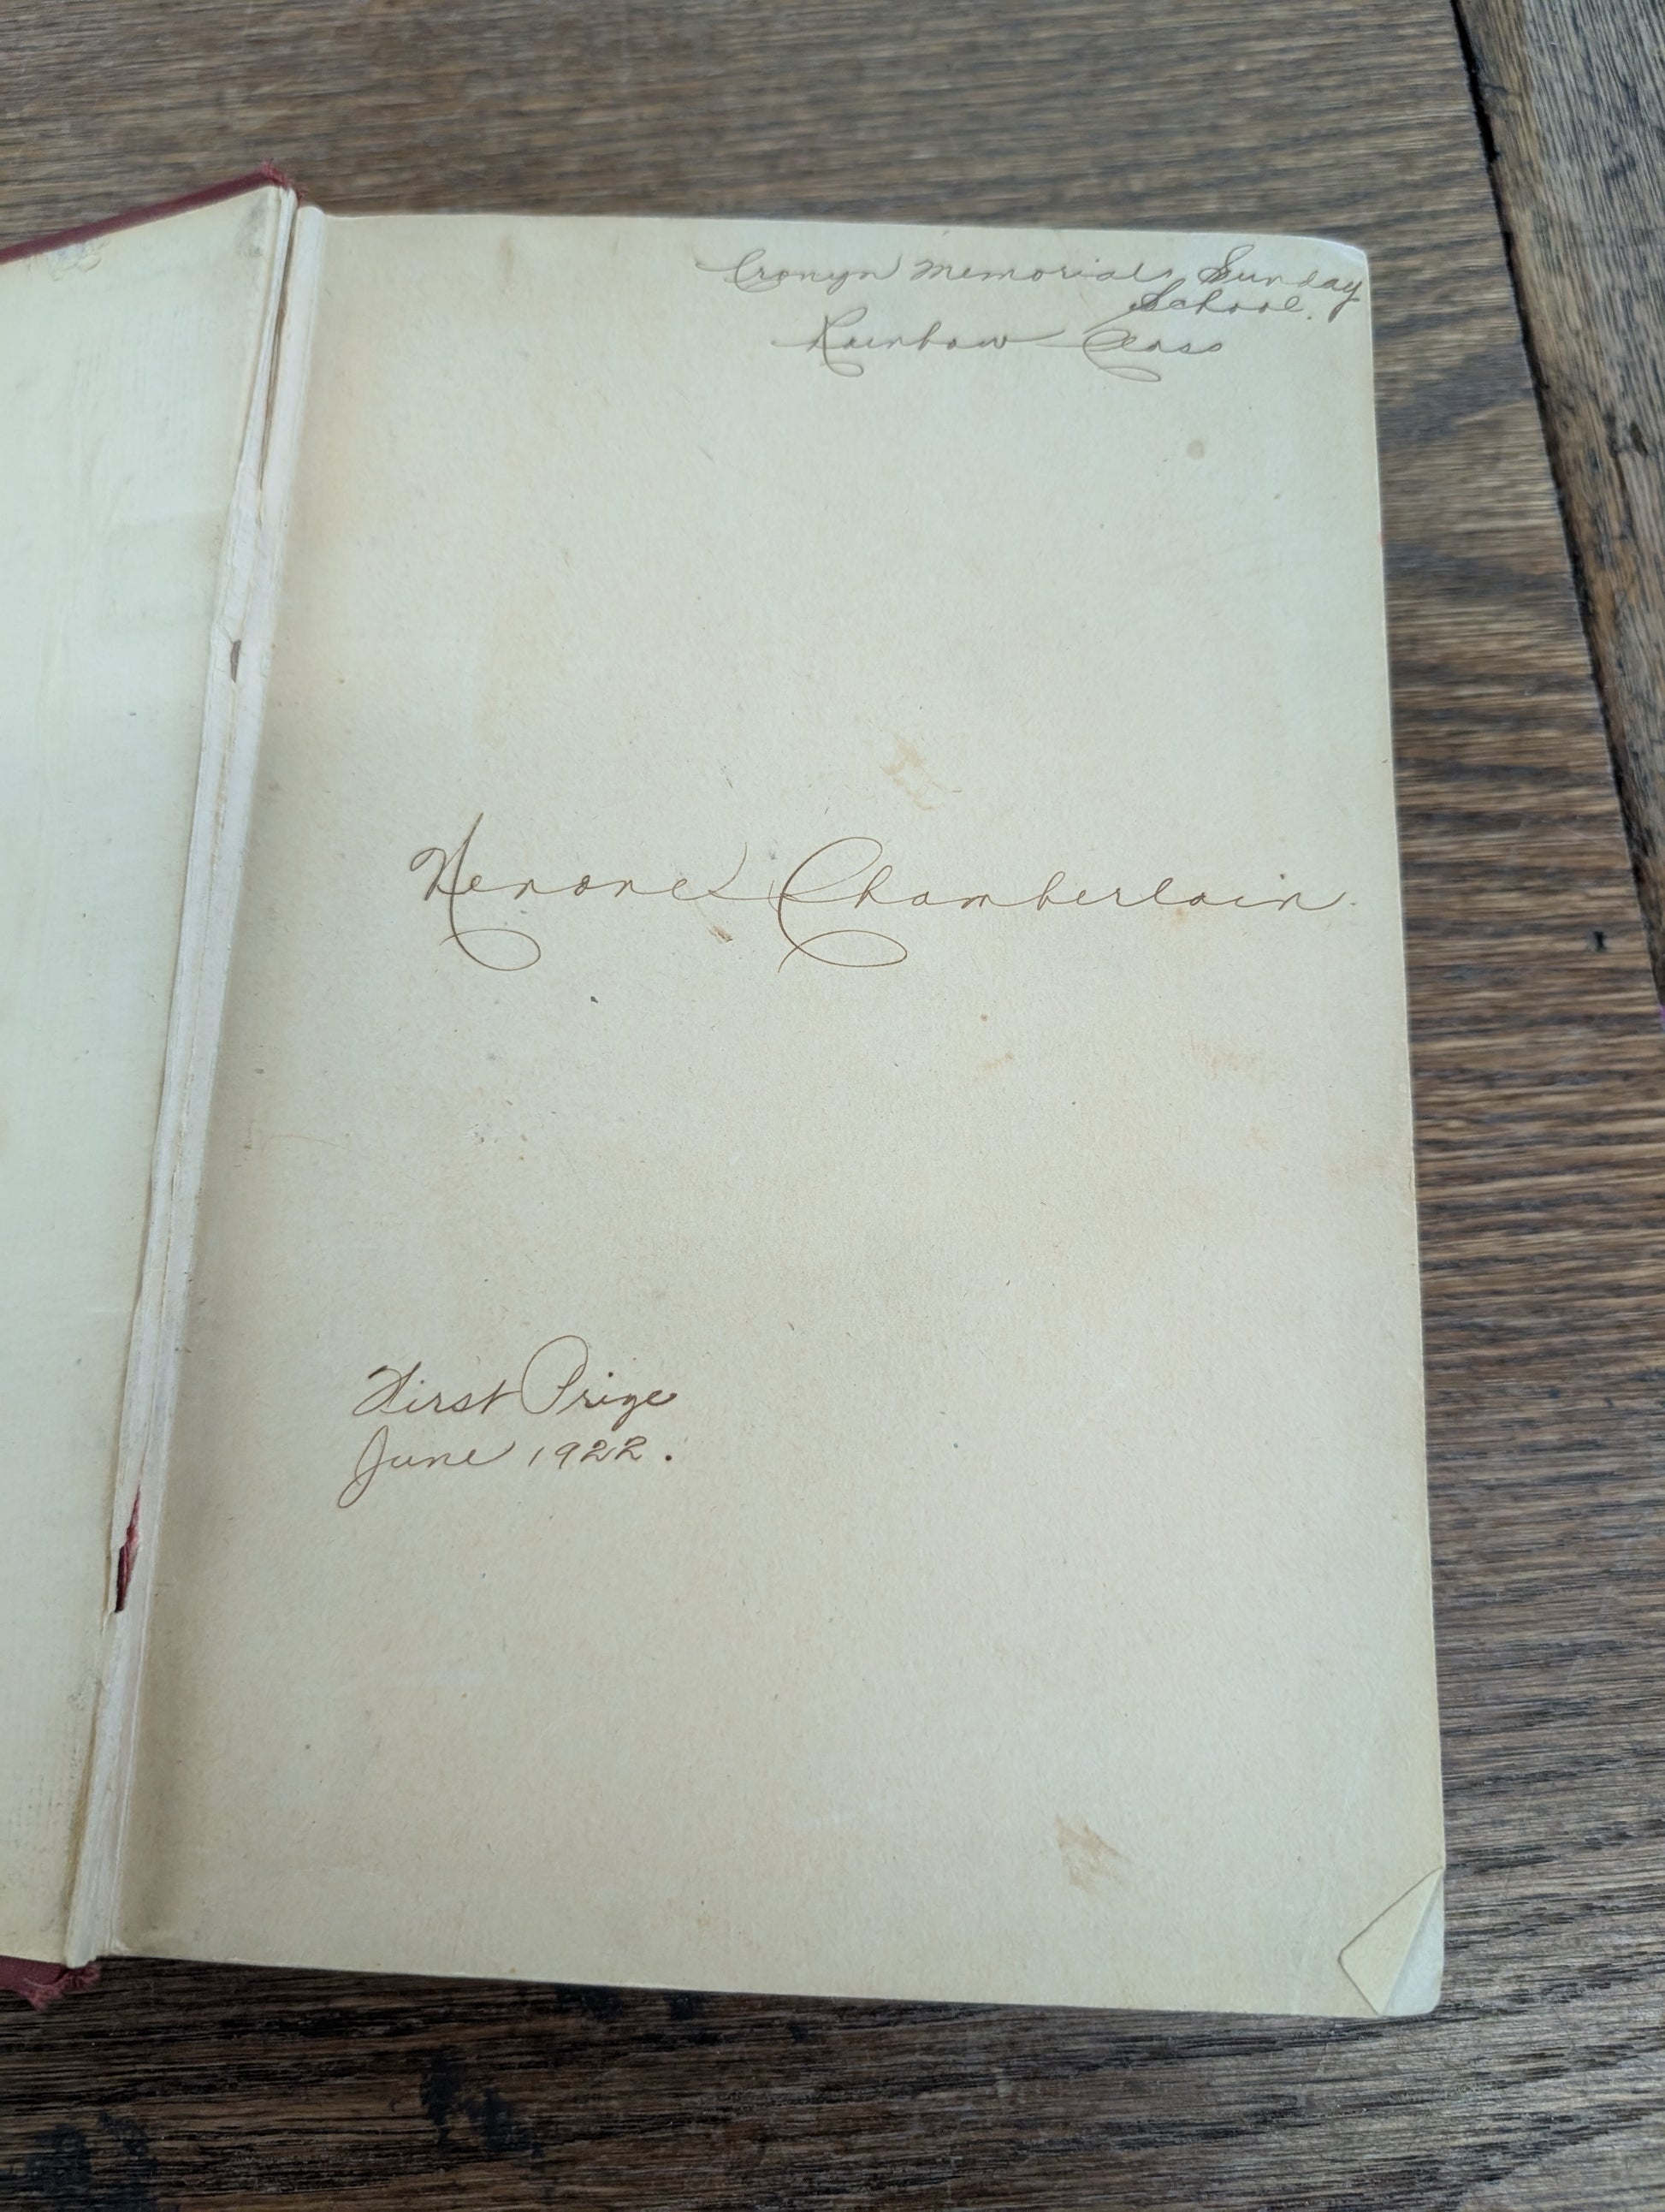 Cronyn Memorial Sunday
School.
Rainbow Class
Chamberlain.
First Prize
June 1922.